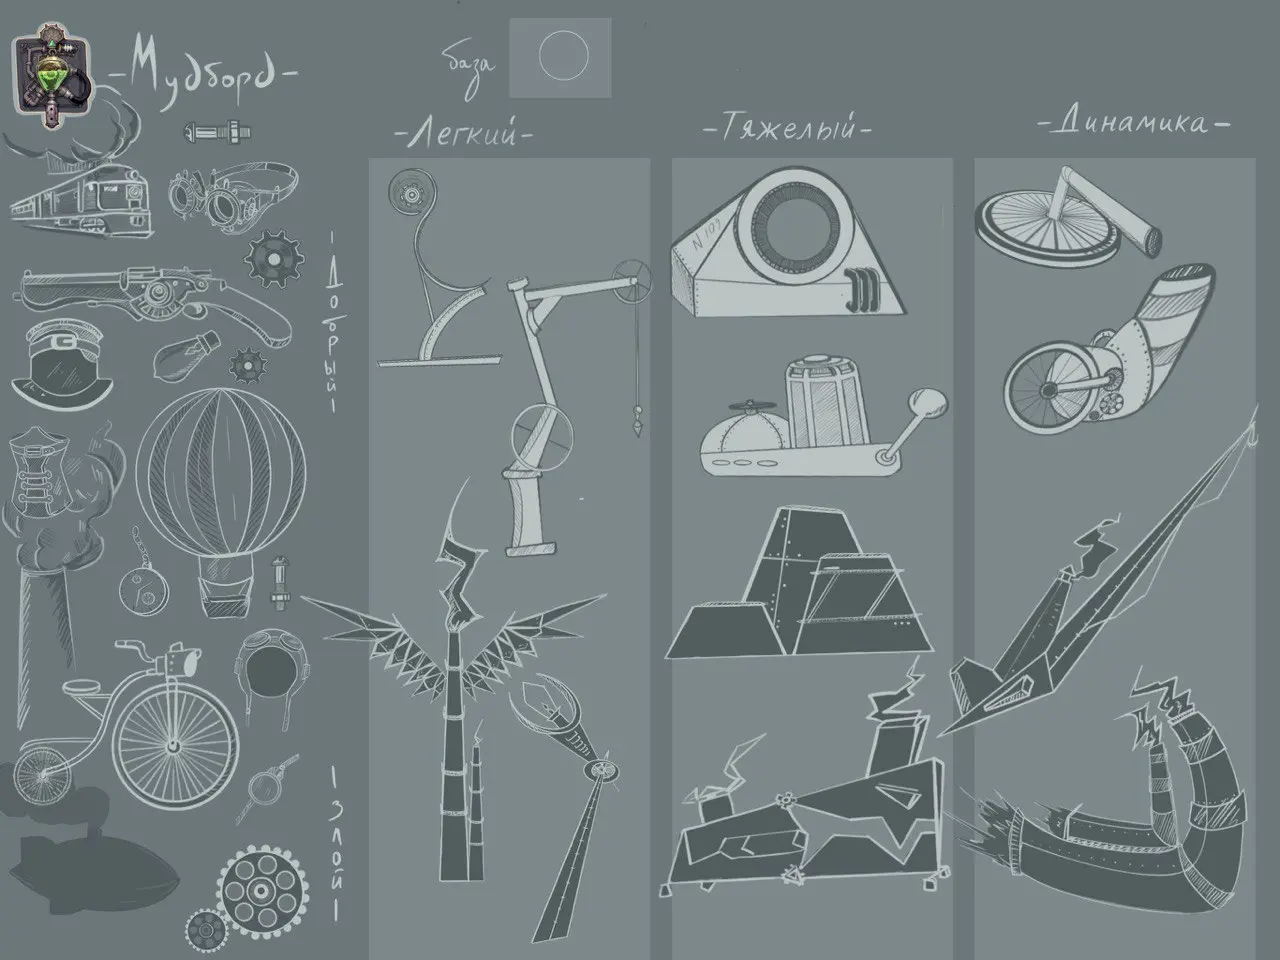 -Мудборд-
база
-Легкий-
-Тяжелый-
-Динамика-
-Добрый-
-Злой-
N 109